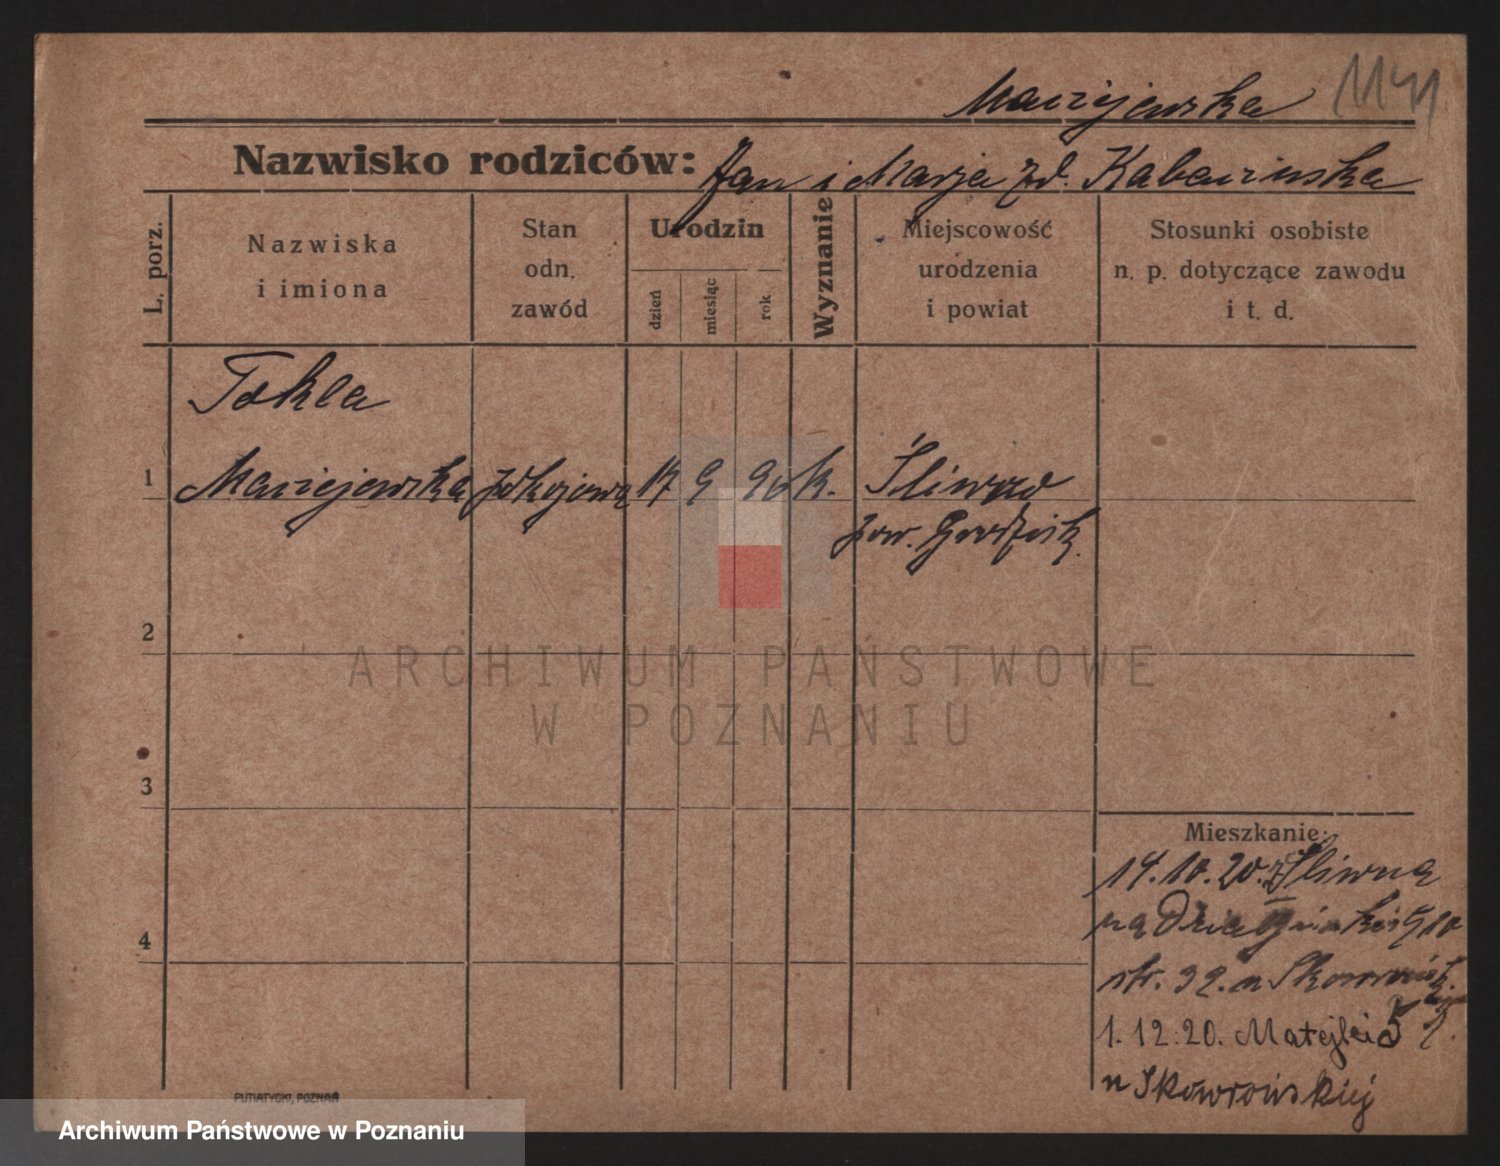 Maciejewska 1141
Nazwisko rodziców: Jan i Marja zd. Kabacińska
L. porz.
Nazwiska
i imiona
Stan
odn.
zawód
Urodzin
dzień
miesiąc
rok
Wyznanie
Miejscowość
urodzenia
i powiat
Stosunki osobiste
n. p. dotyczące zawodu
i t. d.
Tekla
1 Maciejewska pokojowa 17 9 90 k. Śliwno
pow. Grodzisk.
2
ARCHIWUM PAŃSTWOWE
W POZNANIU
3
Mieszkanie:
14.10.20. z Śliwna
na
4
str. 32. u
1.12.20. Matejki 5
u Skowrońskiej
PUTIATYCKI, POZNAŃ
Archiwum Państwowe w Poznaniu